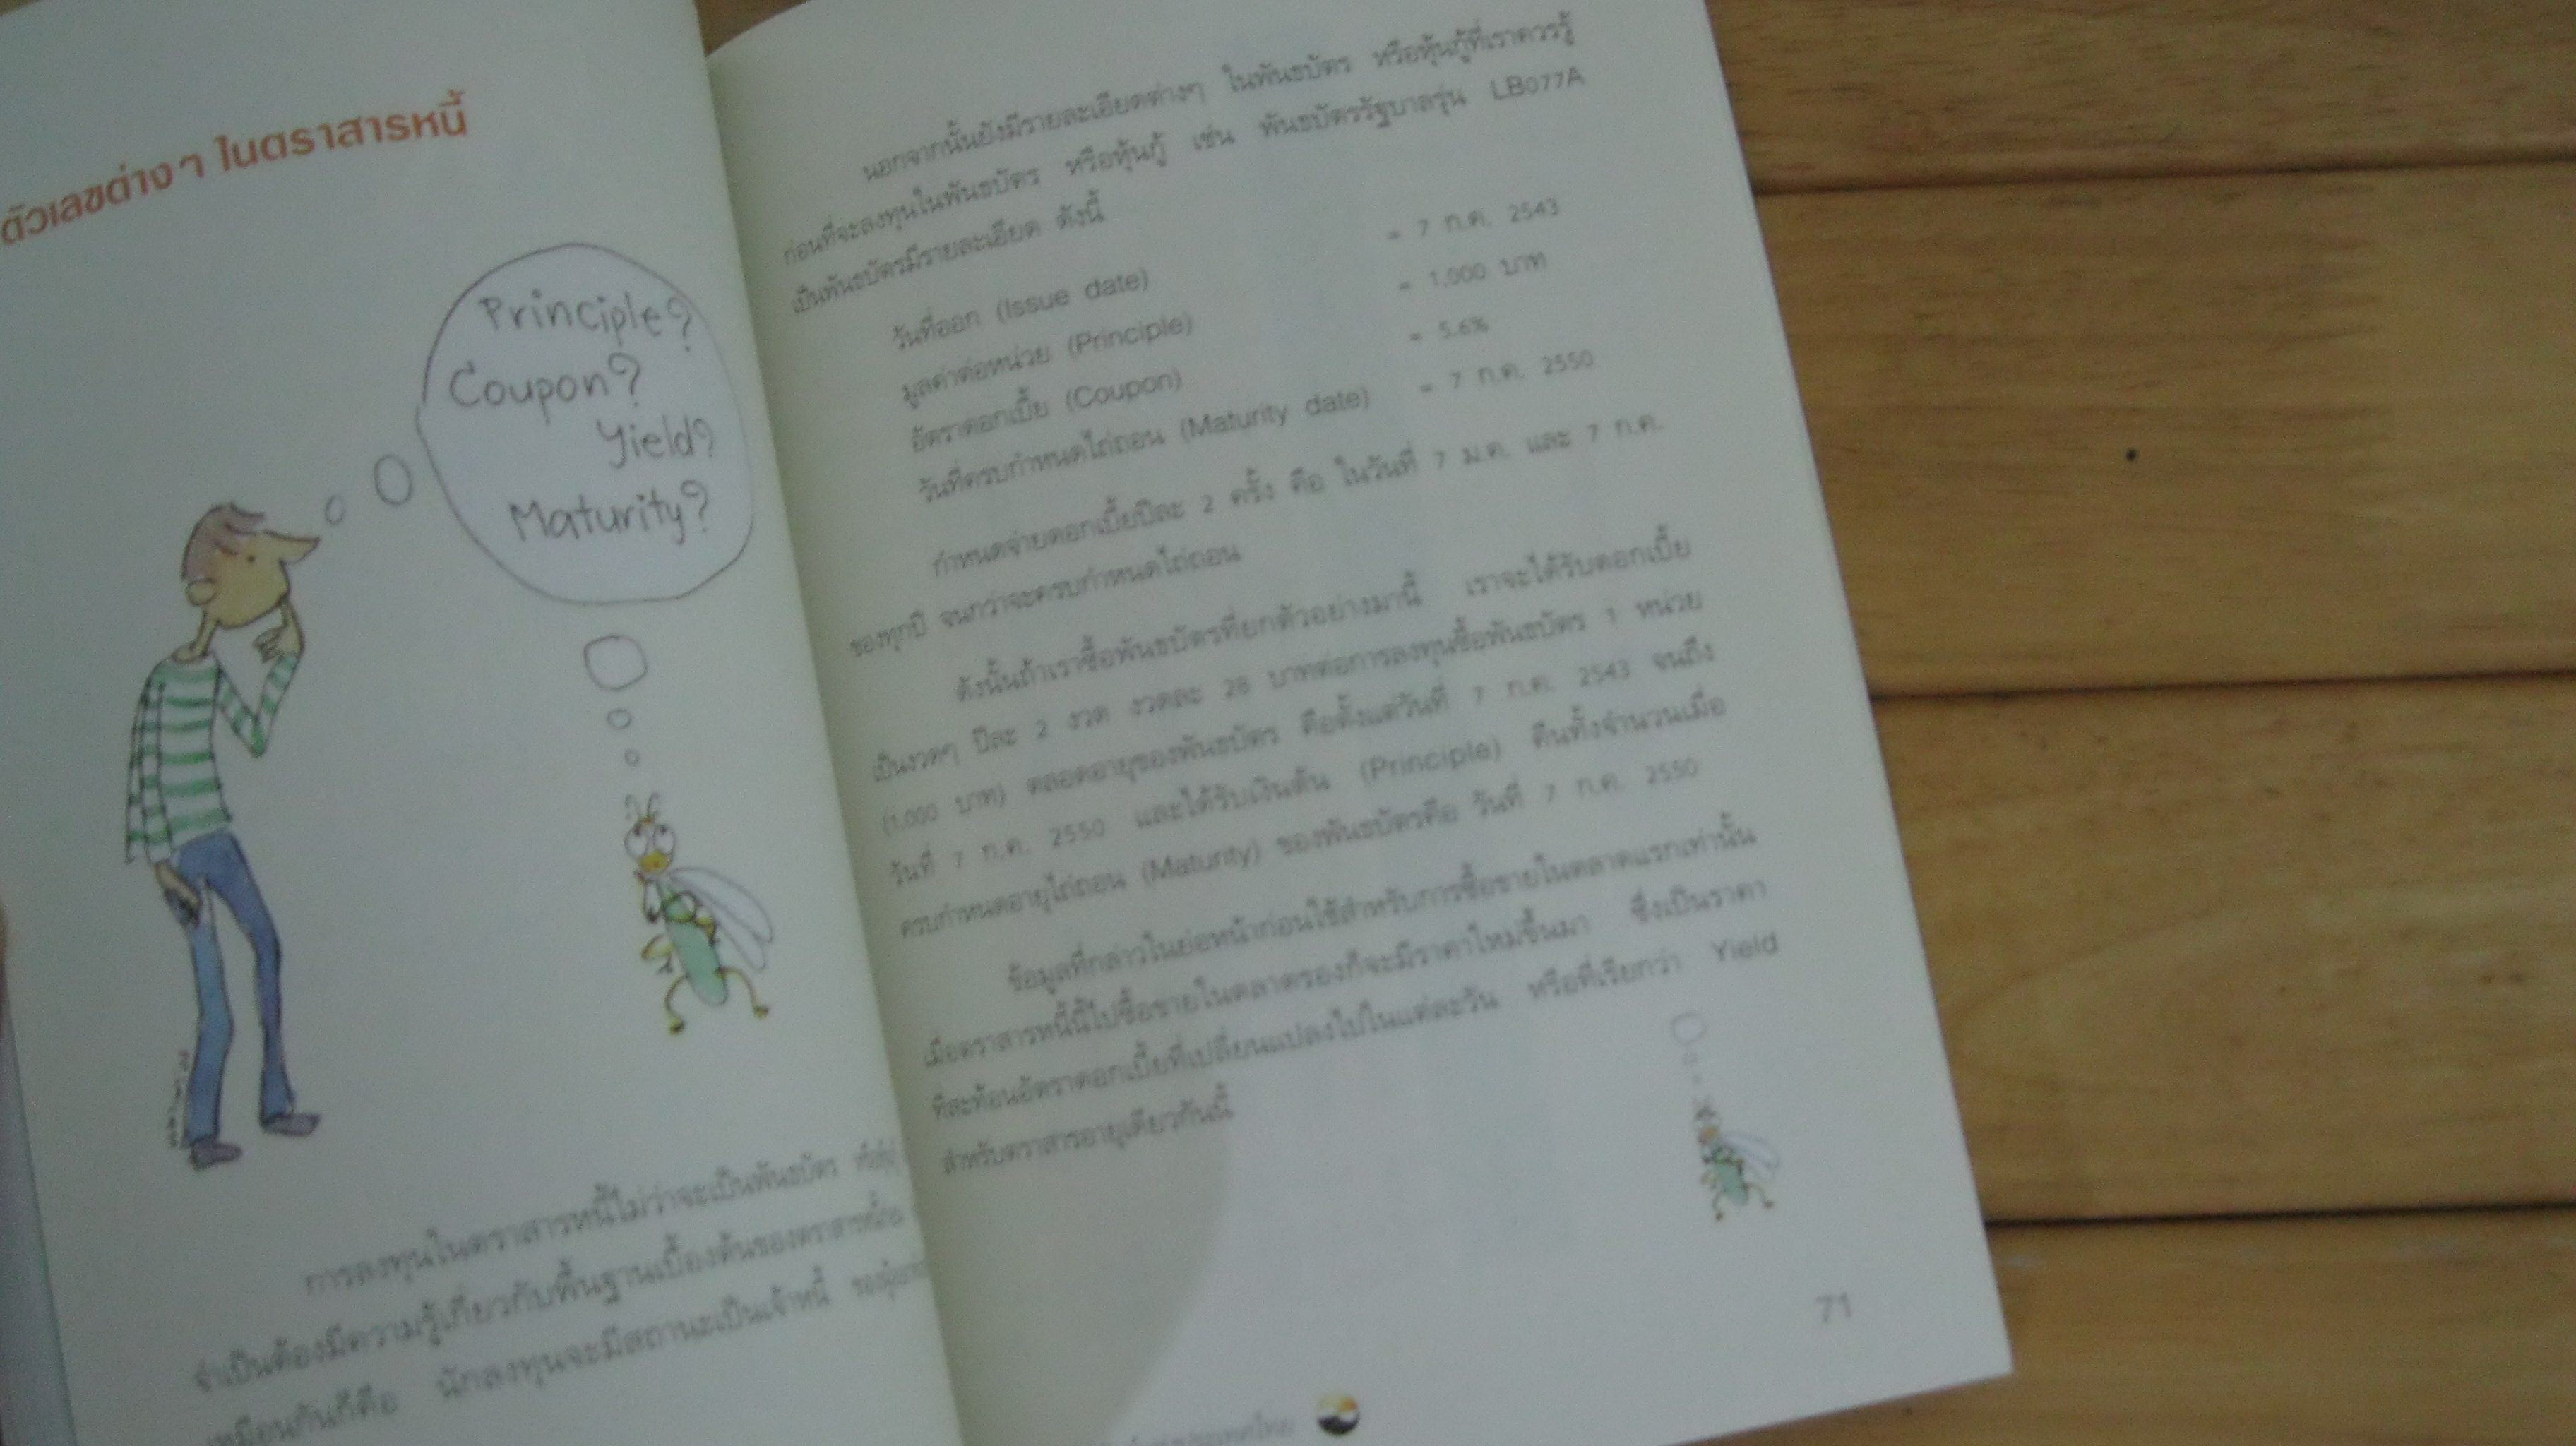 ตัวเลขต่างๆ ในตราสารหนี้
Principle?
Coupon?
Yield?
Maturity?
การลงทุนในตราสารหนี้ไม่ว่าจะเป็นพันธบัตร
จำเป็นต้องมีความรู้เกี่ยวกับพื้นฐานเบื้องต้นของตราสารหนี้ก่อน
เหมือนกันก็คือ นักลงทุนจะมีสถานะเป็นเจ้าหนี้
นอกจากนั้นยังมีรายละเอียดต่างๆ ในพันธบัตร หรือหุ้นกู้ที่เราควรรู้
ก่อนที่จะลงทุนในพันธบัตร หรือหุ้นกู้ เช่น พันธบัตรรัฐบาลรุ่น LB077A
เป็นพันธบัตรมีรายละเอียด ดังนี้
วันที่ออก (Issue date) = 7 ก.ค. 2543
มูลค่าต่อหน่วย (Principle) = 1,000 บาท
อัตราดอกเบี้ย (Coupon) = 5.6%
วันที่ครบกำหนดไถ่ถอน (Maturity date) = 7 ก.ค. 2550
กำหนดจ่ายดอกเบี้ยปีละ 2 ครั้ง คือ ในวันที่ 7 ม.ค. และ 7 ก.ค.
ของทุกปี จนกว่าจะครบกำหนดไถ่ถอน
ดังนั้นถ้าเราซื้อพันธบัตรที่ยกตัวอย่างมานี้ เราจะได้รับดอกเบี้ย
เป็นงวดๆ ปีละ 2 งวด งวดละ 28 บาทต่อการลงทุนซื้อพันธบัตร 1 หน่วย
(1,000 บาท) ตลอดอายุของพันธบัตร คือตั้งแต่วันที่ 7 ก.ค. 2543 จนถึง
วันที่ 7 ก.ค. 2550 และได้รับเงินต้น (Principle) คืนทั้งจำนวนเมื่อ
ครบกำหนดอายุไถ่ถอน (Maturity) ของพันธบัตรคือ วันที่ 7 ก.ค. 2550
ข้อมูลที่กล่าวในย่อหน้าก่อนใช้สำหรับการซื้อขายในตลาดแรกเท่านั้น
เมื่อตราสารหนี้นี้ไปซื้อขายในตลาดรองก็จะมีราคาใหม่ขึ้นมา ซึ่งเป็นราคา
ที่สะท้อนอัตราดอกเบี้ยที่เปลี่ยนแปลงไปในแต่ละวัน หรือที่เรียกว่า Yield
สำหรับตราสารอายุเดียวกันนี้
71